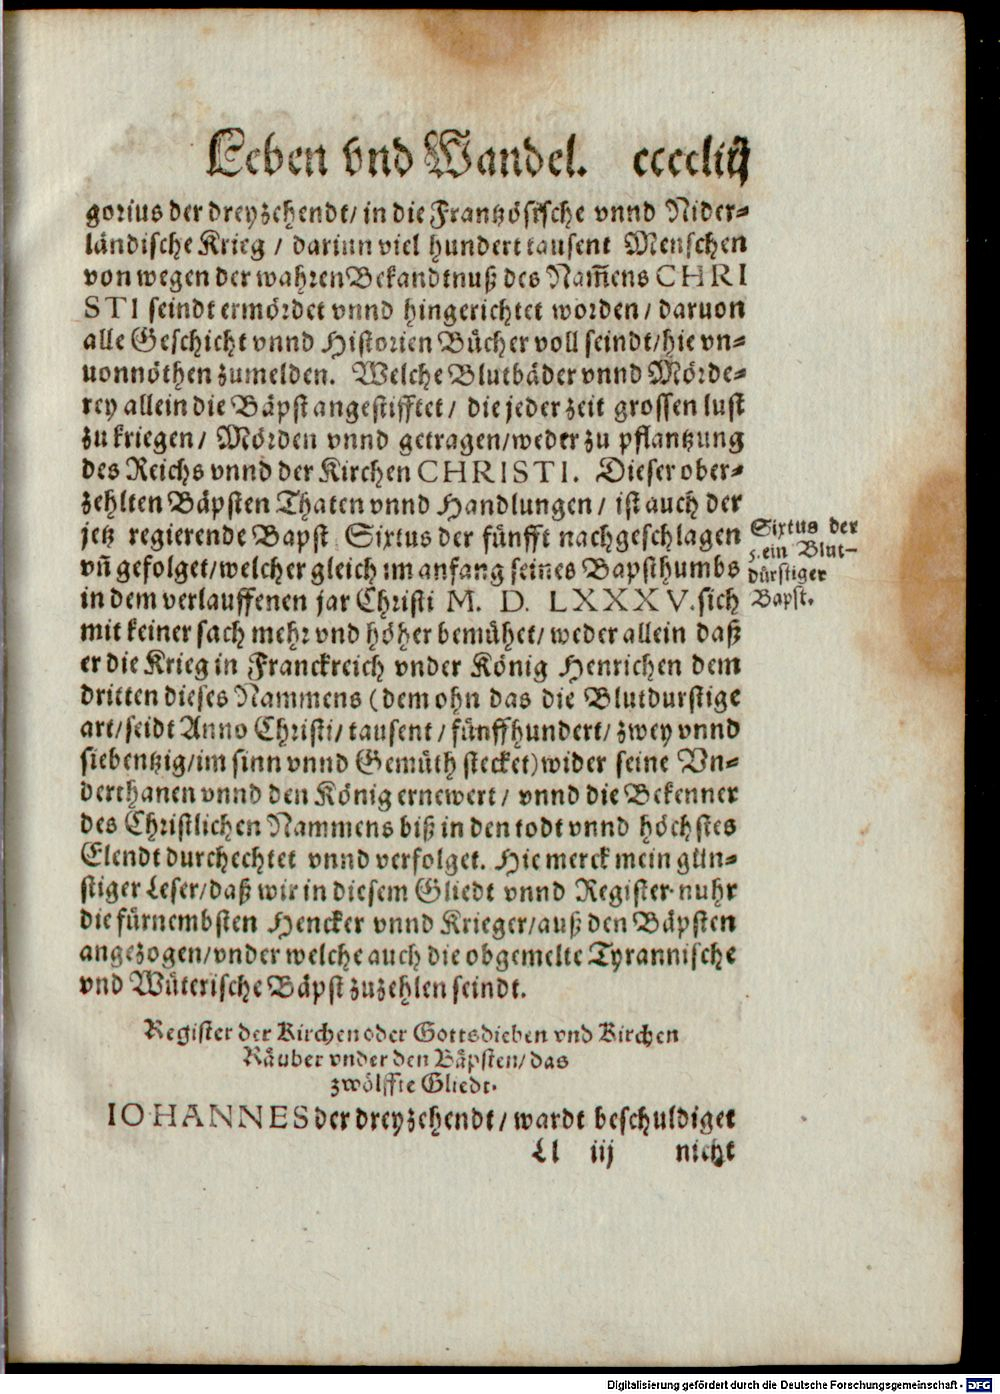 Leben vnd Wandel. ccccliij
gorius der dreyzehendt/ in die Frantzösische vnnd Nider-
ländische Krieg / dariñ viel hundert tausent Menschen
von wegen der wahren Bekandtnuß des Nam̄ens CHRI
STI seindt ermördet vnnd hingerichtet worden/ daruon
alle Geschicht vnnd Historien Bücher voll seindt/hie vn-
uonnöthen zumelden. Welche Blutbäder vnnd Mörde-
rey allein die Bäpst angestifftet/ die jeder zeit grossen lust
zu kriegen/ Mörden vnnd getragen/weder zu pflantzung
des Reichs vnnd der Kirchen CHRISTI. Dieser ober-
zehlten Bäpsten Thaten vnnd Handlungen/ ist auch der
jetz regierende Bapst Sixtus der fünfft nachgeschlagen
vñ gefolget/welcher gleich im anfang seines Bapsthumbs
in dem verlauffenen jar Christi M. D. LXXXV. sich
mit keiner sach mehr vnd höher bemühet/ weder allein daß
er die Krieg in Franckreich vnder König Henrichen dem
dritten dieses Nammens (dem ohn das die Blutdurstige
art/seidt Anno Christi/ tausent/ fünffhundert/ zwey vnnd
siebentzig/im sinn vnnd Gemüth stecket) wider seine Vn-
derthanen vnnd den König ernewert/ vnnd die Bekenner
des Christlichen Nammens biß in den todt vnnd höchstes
Elendt durchechtet vnnd verfolget. Hie merck mein gün-
stiger Leser/daß wir in diesem Gliedt vnnd Register nuhr
die fürnembsten Hencker vnnd Krieger/auß den Bäpsten
angezogen/vnder welche auch die obgemelte Tyrannische
vnd Wüterische Bäpst zuzehlen seindt.
Sixtus der
5. ein Blut-
dürstiger
Bapst.
Register der Kirchen oder Gottsdieben vnd Kirchen
Räuber vnder den Bäpsten/ das
zwölffte Gliedt.
IOHANNES der dreyzehendt/ wardt beschuldiget
Ll iij nicht
Digitalisierung gefördert durch die Deutsche Forschungsgemeinschaft - DFG